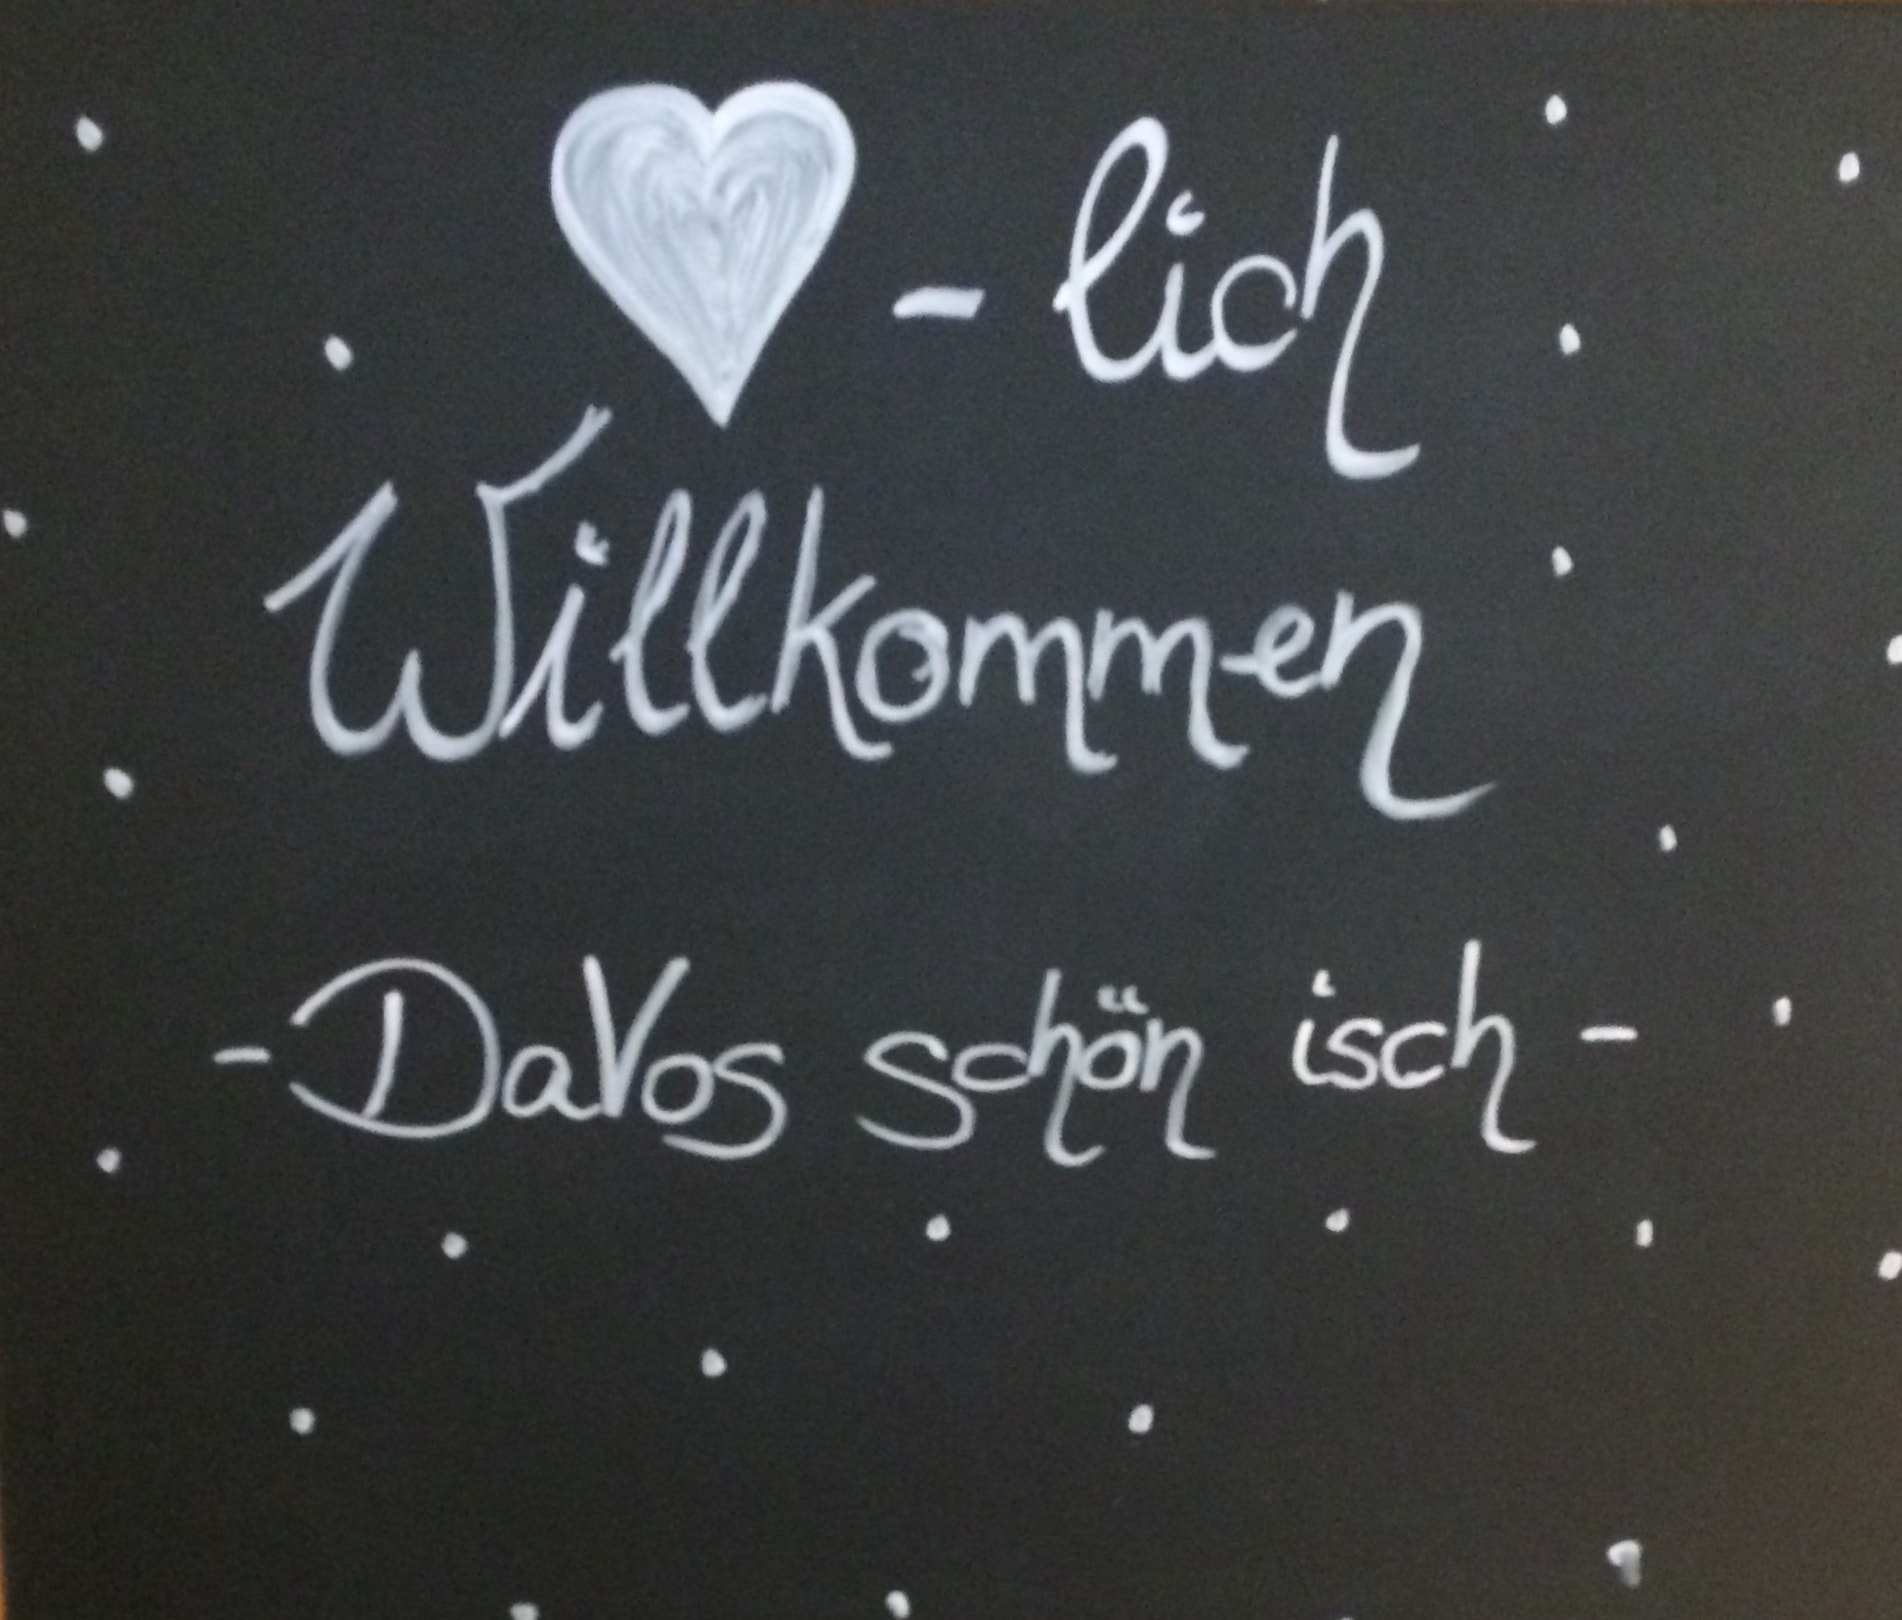 ♥-lich
Willkommen
-DaVos schön isch-